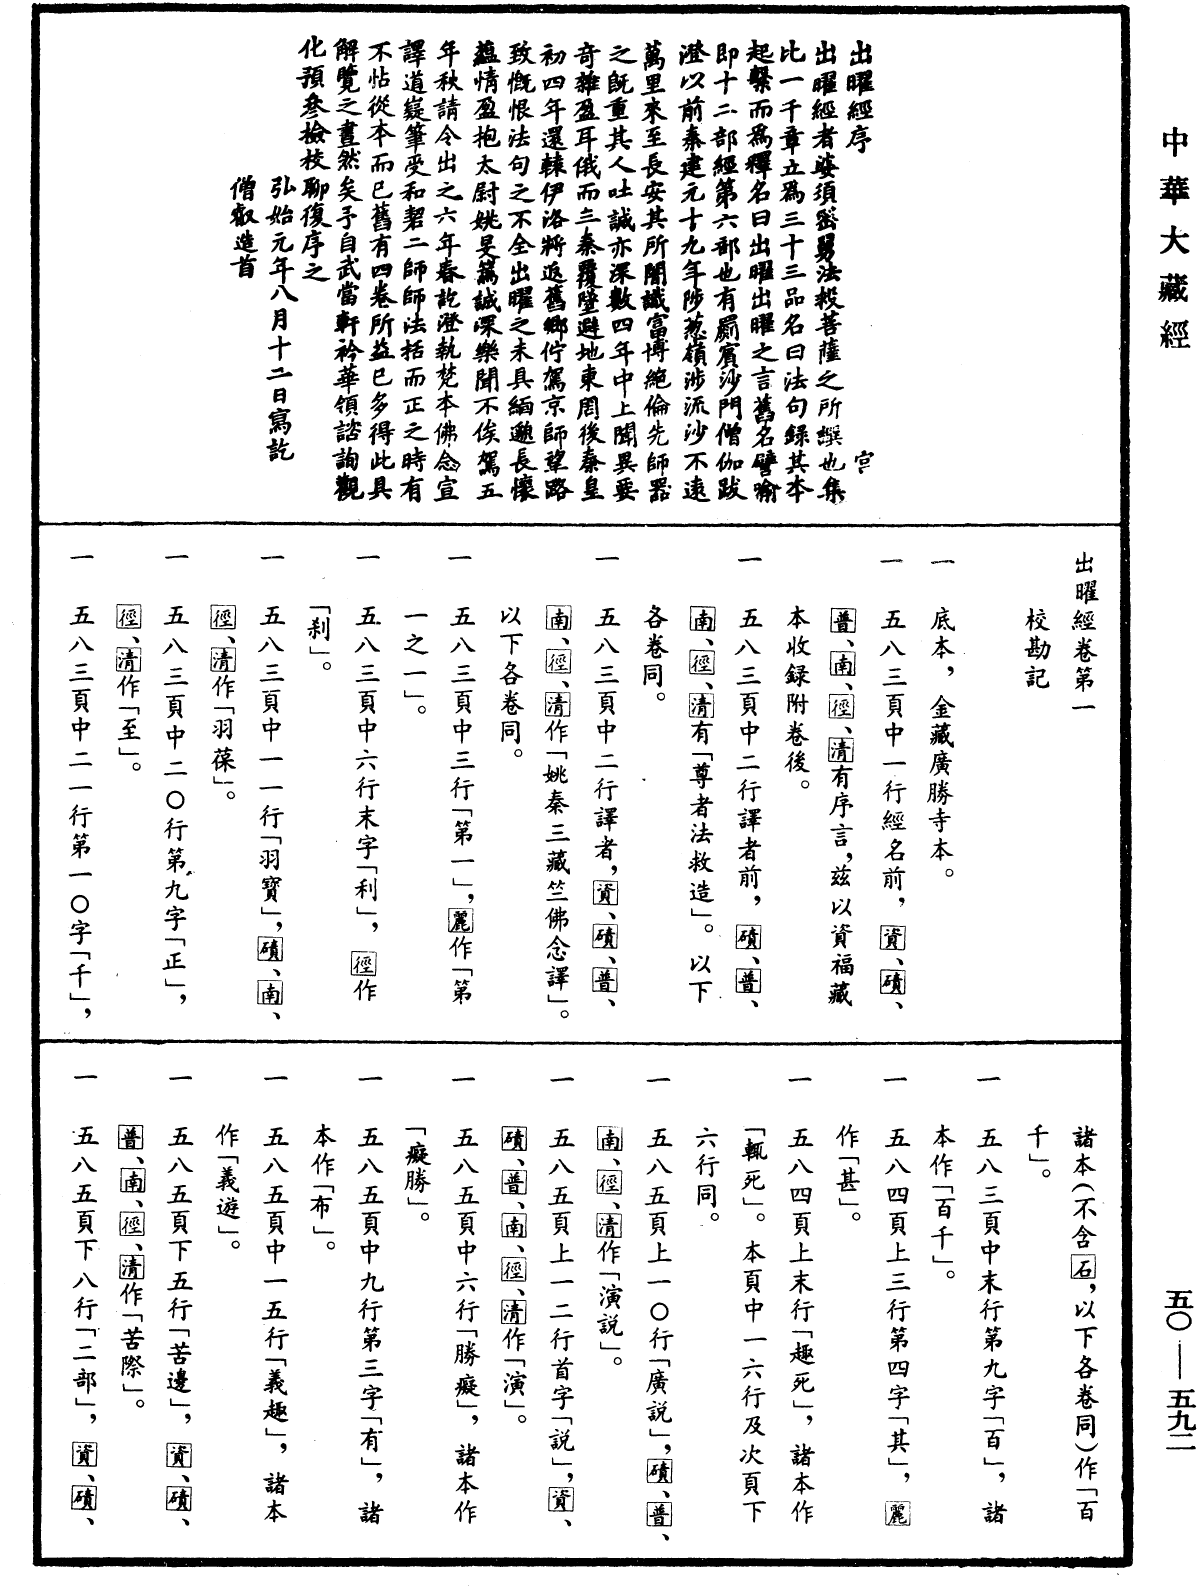 中華大藏經
五〇——五九二
出曜經序 宮
出曜經者婆須密舅法救菩薩之所撰也集
比一千章立爲三十三品名曰法句錄其本
起繫而爲釋名曰出曜出曜之言舊名譬喻
即十二部經第六部也有罽賓沙門僧伽跋
澄以前秦建元十九年陟葱嶺涉流沙不遠
萬里來至長安其所闇識富博絶倫先師器
之旣重其人吐誠亦深數四年中上聞異要
奇雜盈耳俄而三秦覆墜避地東周後秦皇
初四年還轅伊洛將返舊鄉佇駕京師望路
致慨恨法句之不全出曜之未具緬邈長懷
蘊情盈抱太尉姚旻篤誠深樂聞不俟駕五
年秋請令出之六年春訖澄執梵本佛念宣
譯道嶷筆受和碧二師師法括而正之時有
不怗從本而已舊有四卷所益已多得此具
解覽之畫然矣予自武當軒衿華領諮詢觀
化預叅檢校聊復序之
弘始元年八月十二日寫訖
僧叡造首
出曜經卷第一
校勘記
一 底本，金藏廣勝寺本。
一 五八三頁中一行經名前，資、磧、
普、南、徑、清有序言，兹以資福藏
本收録附卷後。
一 五八三頁中二行譯者前，磧、普、
南、徑、清有「尊者法救造」。以下
各卷同。
一 五八三頁中二行譯者，資、磧、普、
南、徑、清作「姚秦三藏竺佛念譯」。
以下各卷同。
一 五八三頁中三行「第一」，麗作「第
一之一」。
一 五八三頁中六行末字「利」，徑作
「刹」。
一 五八三頁中一一行「羽寶」，磧、南、
徑、清作「羽葆」。
一 五八三頁中二〇行第九字「正」，
徑、清作「至」。
一 五八三頁中二一行第一〇字「千」，
諸本（不含石，以下各卷同）作「百
千」。
一 五八三頁中末行第九字「百」，諸
本作「百千」。
一 五八四頁上三行第四字「其」，麗
作「甚」。
一 五八四頁上末行「趣死」，諸本作
「輒死」。本頁中一六行及次頁下
六行同。
一 五八五頁上一〇行「廣説」，磧、普、
南、徑、清作「演説」。
一 五八五頁上一二行首字「説」，資、
磧、普、南、徑、清作「演」。
一 五八五頁中六行「勝癡」，諸本作
「癡勝」。
一 五八五頁中九行第三字「有」，諸
本作「布」。
一 五八五頁中一五行「義趣」，諸本
作「義遊」。
一 五八五頁下五行「苦邊」，資、磧、
普、南、徑、清作「苦際」。
一 五八五頁下八行「二部」，資、磧、